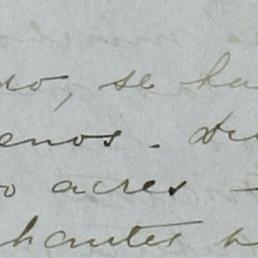 do, se ha
enos. De
o acres -
hantes